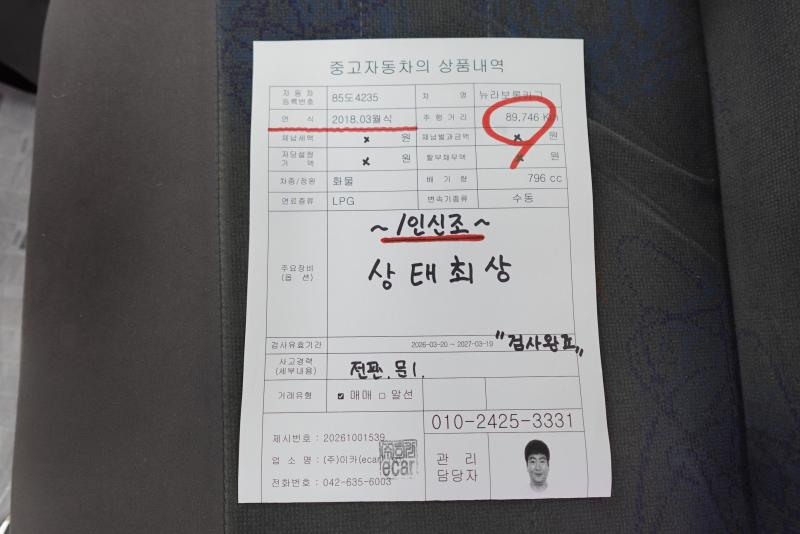 중고자동차의 상품내역
자동차 등록번호 85도4235 차 명 뉴라보롱카고
연 식 2018.03월식 주행거리 89,746 Km
체납세액 × 원 체납벌과금액 × 원
저당설정 가액 × 원 할부채무액 × 원
차종/정원 화물 배기량 796 cc
연료종류 LPG 변속기종류 수동
주요장비 (옵 션)
~1인신조~
상태최상
검사유효기간 2026-03-20 ~ 2027-03-19 "검사완료"
사고경력 (세부내용) 전판.문1.
거래유형 ☑ 매매 □ 알선
010-2425-3331
제시번호 : 20261001539
업 소 명 : (주)이카(ecar)
전화번호 : 042-635-6003
관 리
담당자
ecar